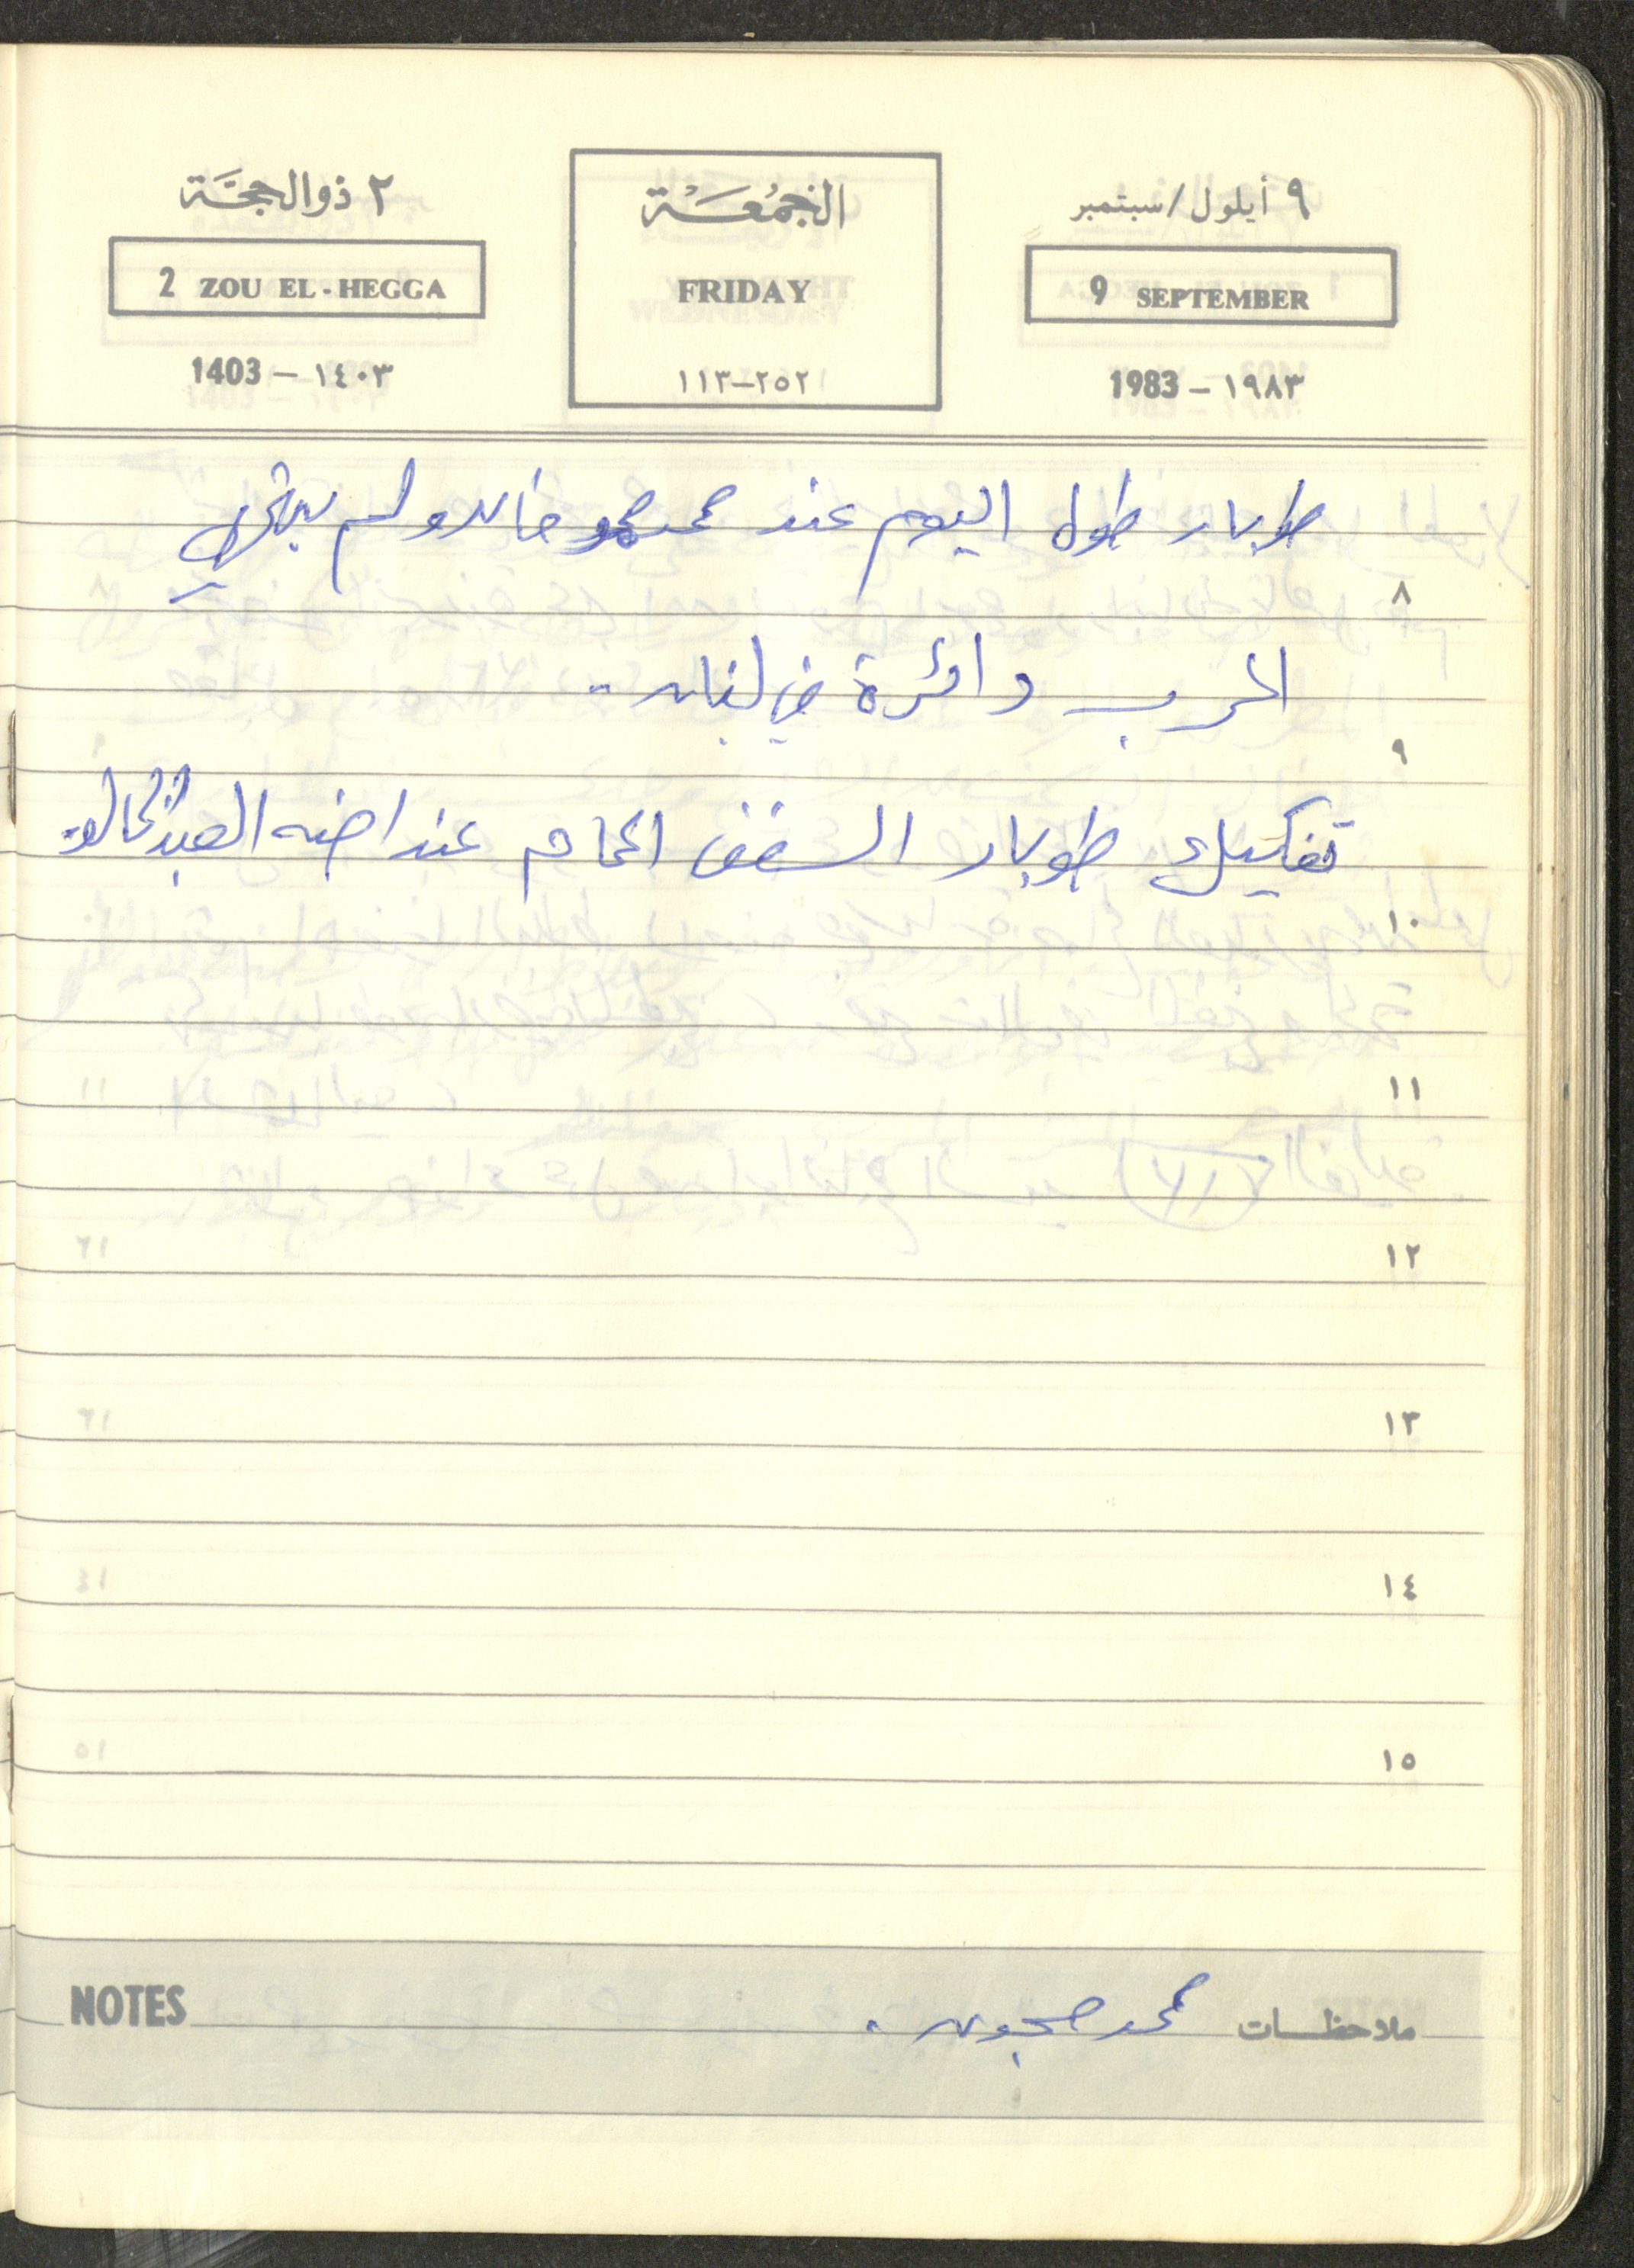 ٩ أيلول/سبتمبر
9 SEPTEMBER
1983 - ١٩٨٣
الجُمُعَة
FRIDAY
١١٣-٢٥٢
٢ ذو الحجَّة
2 ZOU EL-HEGGA
1403 - ١٤٠٣
طوبار طول اليوم عند محمد خالد ولم ينتهي
٨
الحرب دائرة في لبنان ..
٩
تفكيك طوبار السقف الحمام عند اخيه العبد الخالد
١٠
١١
١٢
١٣
١٤
١٥
ملاحظات محمد .
NOTES